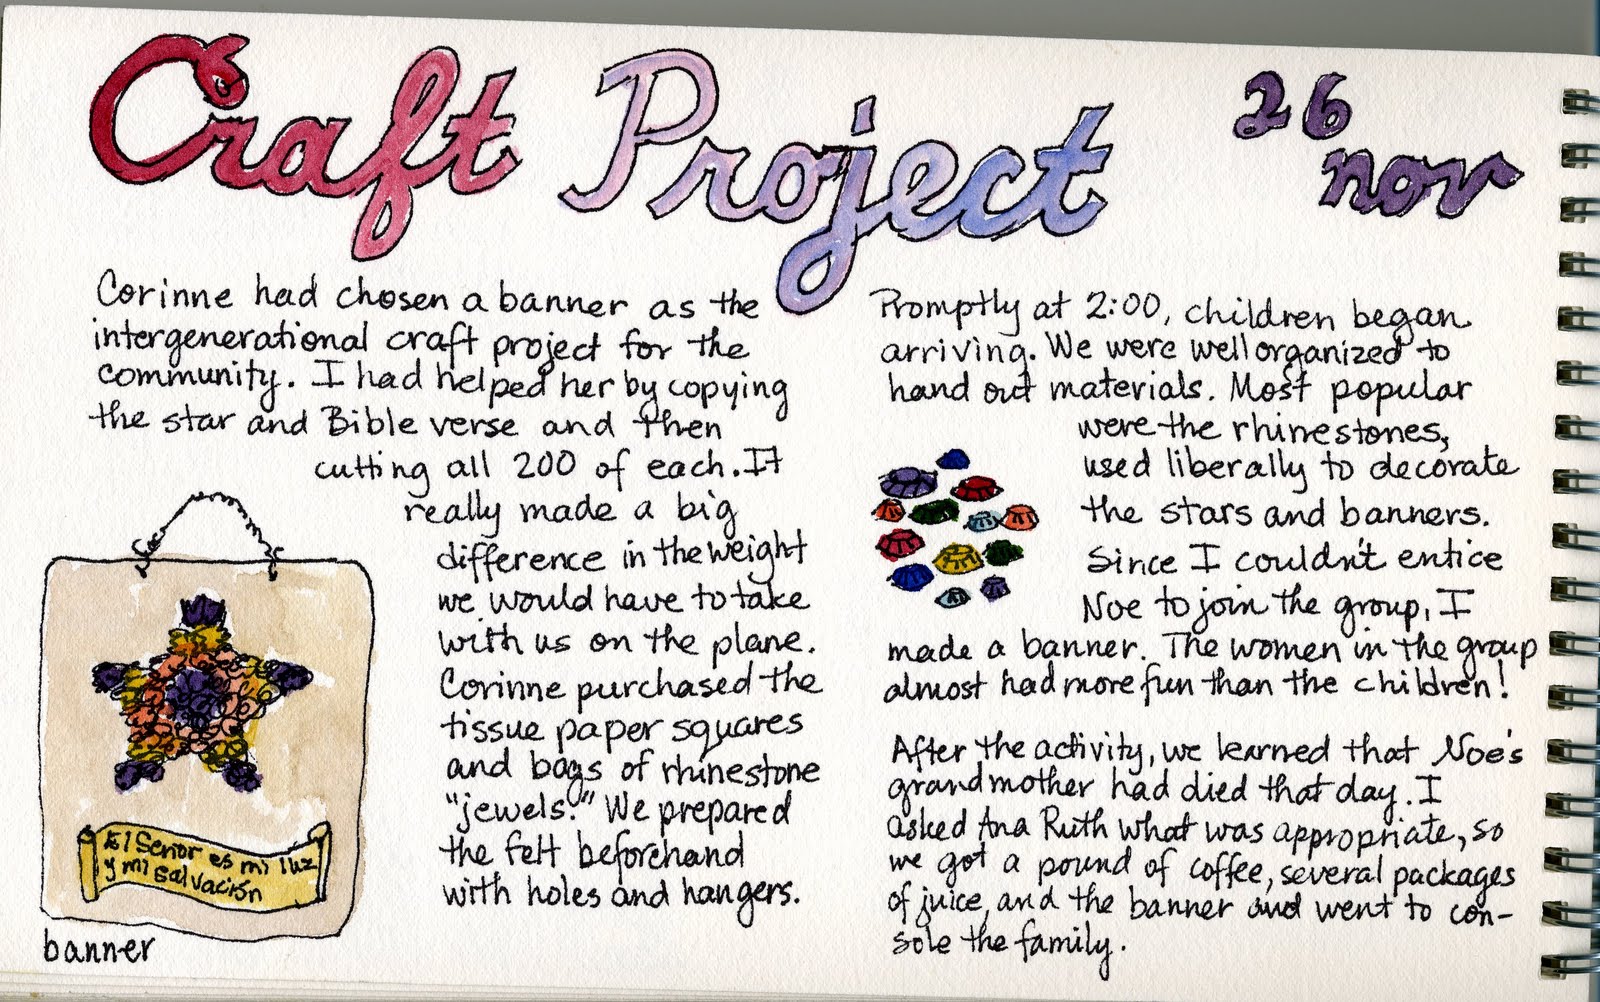 Craft Project
26
nov
Corinne had chosen a banner as the
intergenerational craft project for the
community. I had helped her by copying
the star and Bible verse and then
cutting all 200 of each. It
really made a big
difference in the weight
we would have to take
with us on the plane.
Corinne purchased the
tissue paper squares
and bags of rhinestone
"jewels." We prepared
the felt beforehand
with holes and hangers.
El Señor es mi luz
y mi salvación
banner
Promptly at 2:00, children began
arriving. We were well organized to
hand out materials. Most popular
were the rhinestones,
used liberally to decorate
the stars and banners.
Since I couldn't entice
Noe to join the group, I
made a banner. The women in the group
almost had more fun than the children!
After the activity, we learned that Noe's
grandmother had died that day. I
asked Ana Ruth what was appropriate, so
we got a pound of coffee, several packages
of juice, and the banner and went to con-
sole the family.